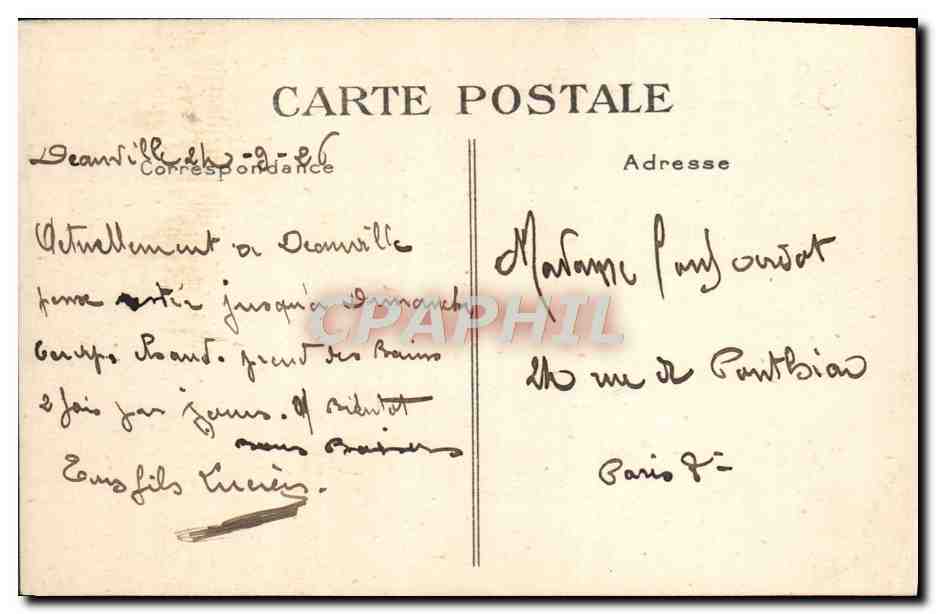 CARTE POSTALE
Deauville 24-9-26
Correspondance
Adresse
Actuellement a Deauville
pense jusqu'a Dimanche
temps chaud. prend des Bains
2 fois par jour. A Bientot
bons Baisers
Ton fils Lucien.
Madame
24 rue de Ponthieu
Paris 8e
CPAPHIL